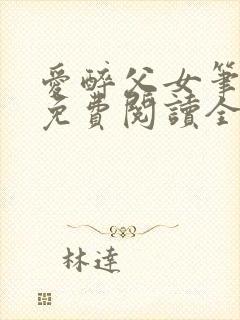 愛醉父女筆
免費閱讀全
林達